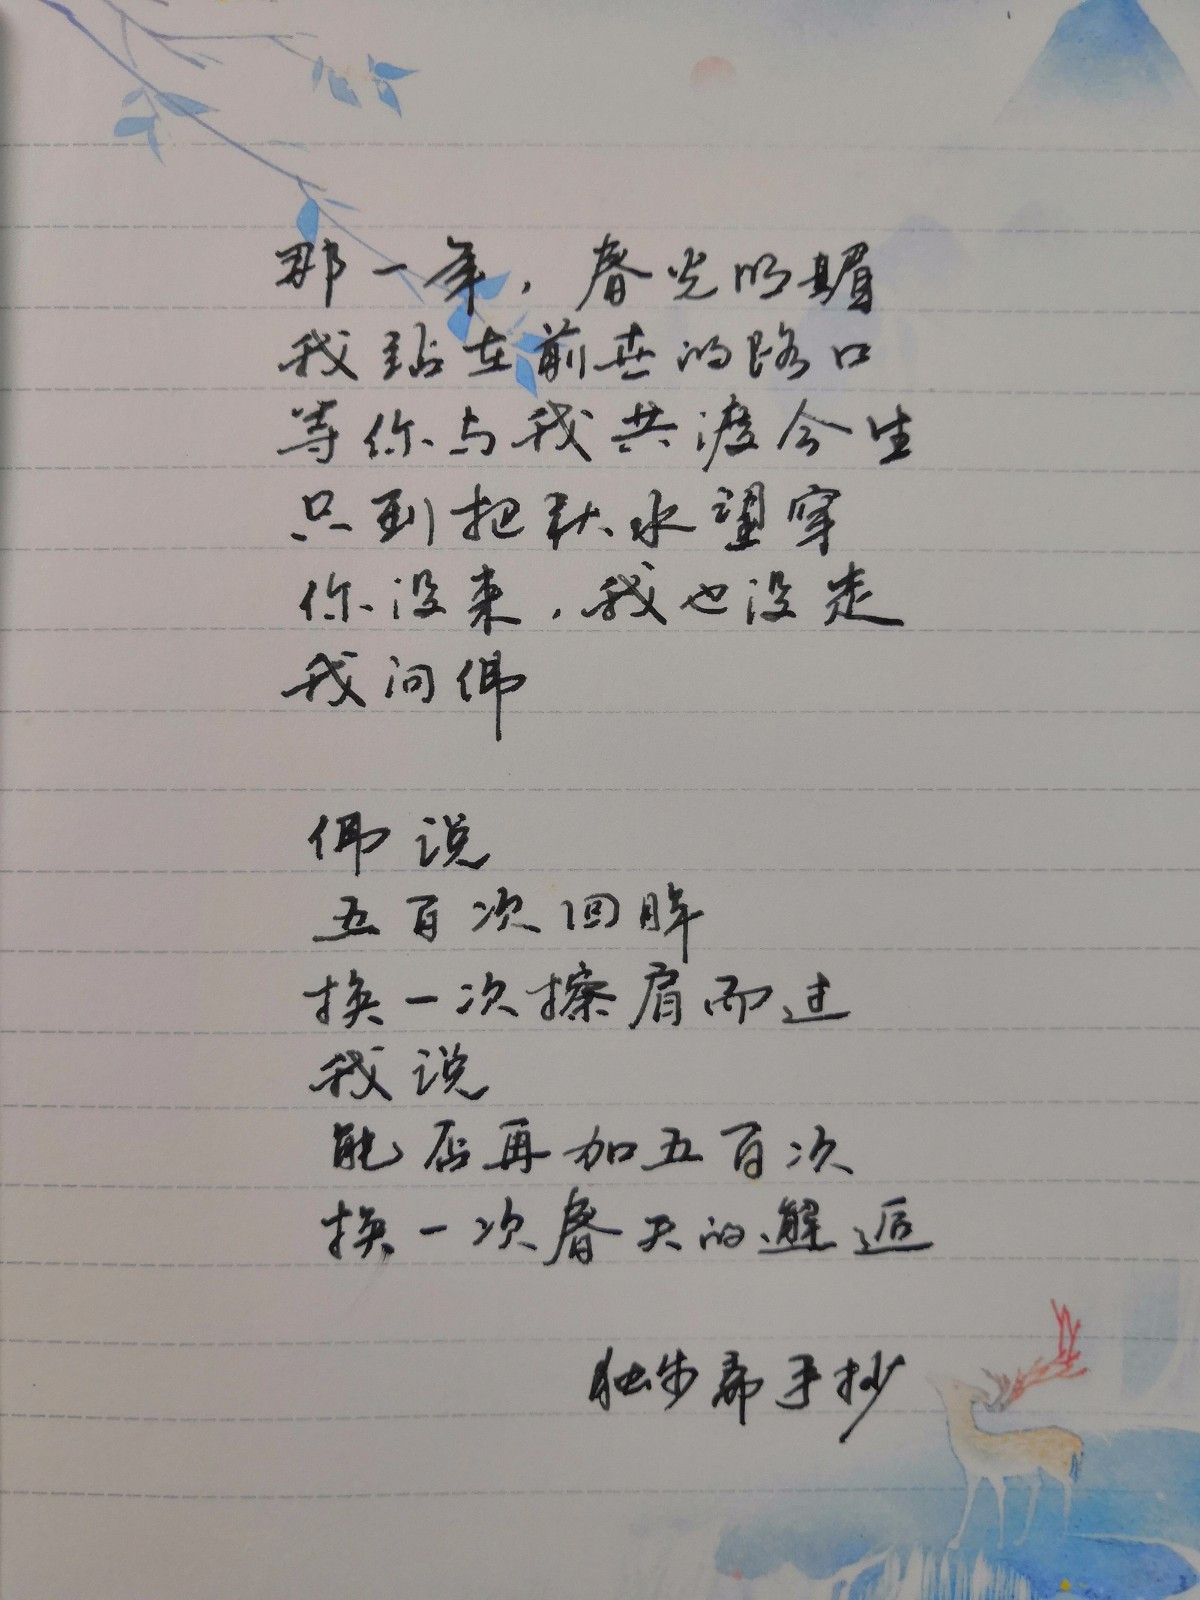 那一年，春光明媚
我站在前世的路口
等你与我共渡今生
只到把秋水望穿
你没来，我也没走
我问佛
佛说
五百次回眸
换一次擦肩而过
我说
能否再加五百次
换一次春天的邂逅
独步 手抄